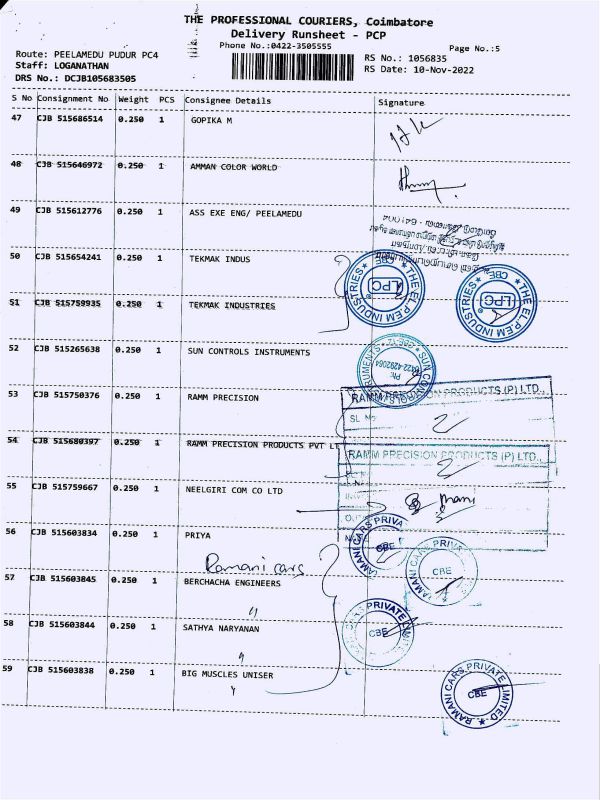 THE PROFESSIONAL COURIERS, Coimbatore
Delivery Runsheet - PCP
Phone No.:0422-3505555
Page No.:5
Route: PEELAMEDU PUDUR PC4
Staff: LOGANATHAN
DRS No.: DCJB105683505
RS No.: 1056835
RS Date: 10-Nov-2022
S No Consignment No Weight PCS Consignee Details Signature
47 CJB 515686514 0.250 1 GOPIKA M
48 CJB 515646972 0.250 1 AMMAN COLOR WORLD
49 CJB 515612776 0.250 1 ASS EXE ENG/ PEELAMEDU
50 CJB 515654241 0.250 1 TEKMAK INDUS
THE EL.P.EM INDUSTRIES CBE LPC
THE EL.P.EM INDUSTRIES CBE LPC
51 CJB 515759935 0.250 1 TEKMAK INDUSTRIES
52 CJB 515265638 0.250 1 SUN CONTROLS INSTRUMENTS
53 CJB 515750376 0.250 1 RAMM PRECISION
RAMM PRECISION PRODUCTS (P) LTD.,
SL No
54 CJB 515680397 0.250 1 RAMM PRECISION PRODUCTS PVT LT
RAMM PRECISION PRODUCTS (P) LTD.,
55 CJB 515759667 0.250 1 NEELGIRI COM CO LTD
mani
56 CJB 515603834 0.250 1 PRIYA
RAMANI CARS PRIVA
CBE
Ramani cars
RAMANI CARS PRIVA
CBE
57 CJB 515603845 0.250 1 BERCHACHA ENGINEERS
58 CJB 515603844 0.250 1 SATHYA NARYANAN
PRIVATE LIMITED
CBE
59 CJB 515603838 0.250 1 BIG MUSCLES UNISER
RAMANI CARS PRIVATE LIMITED
CBE